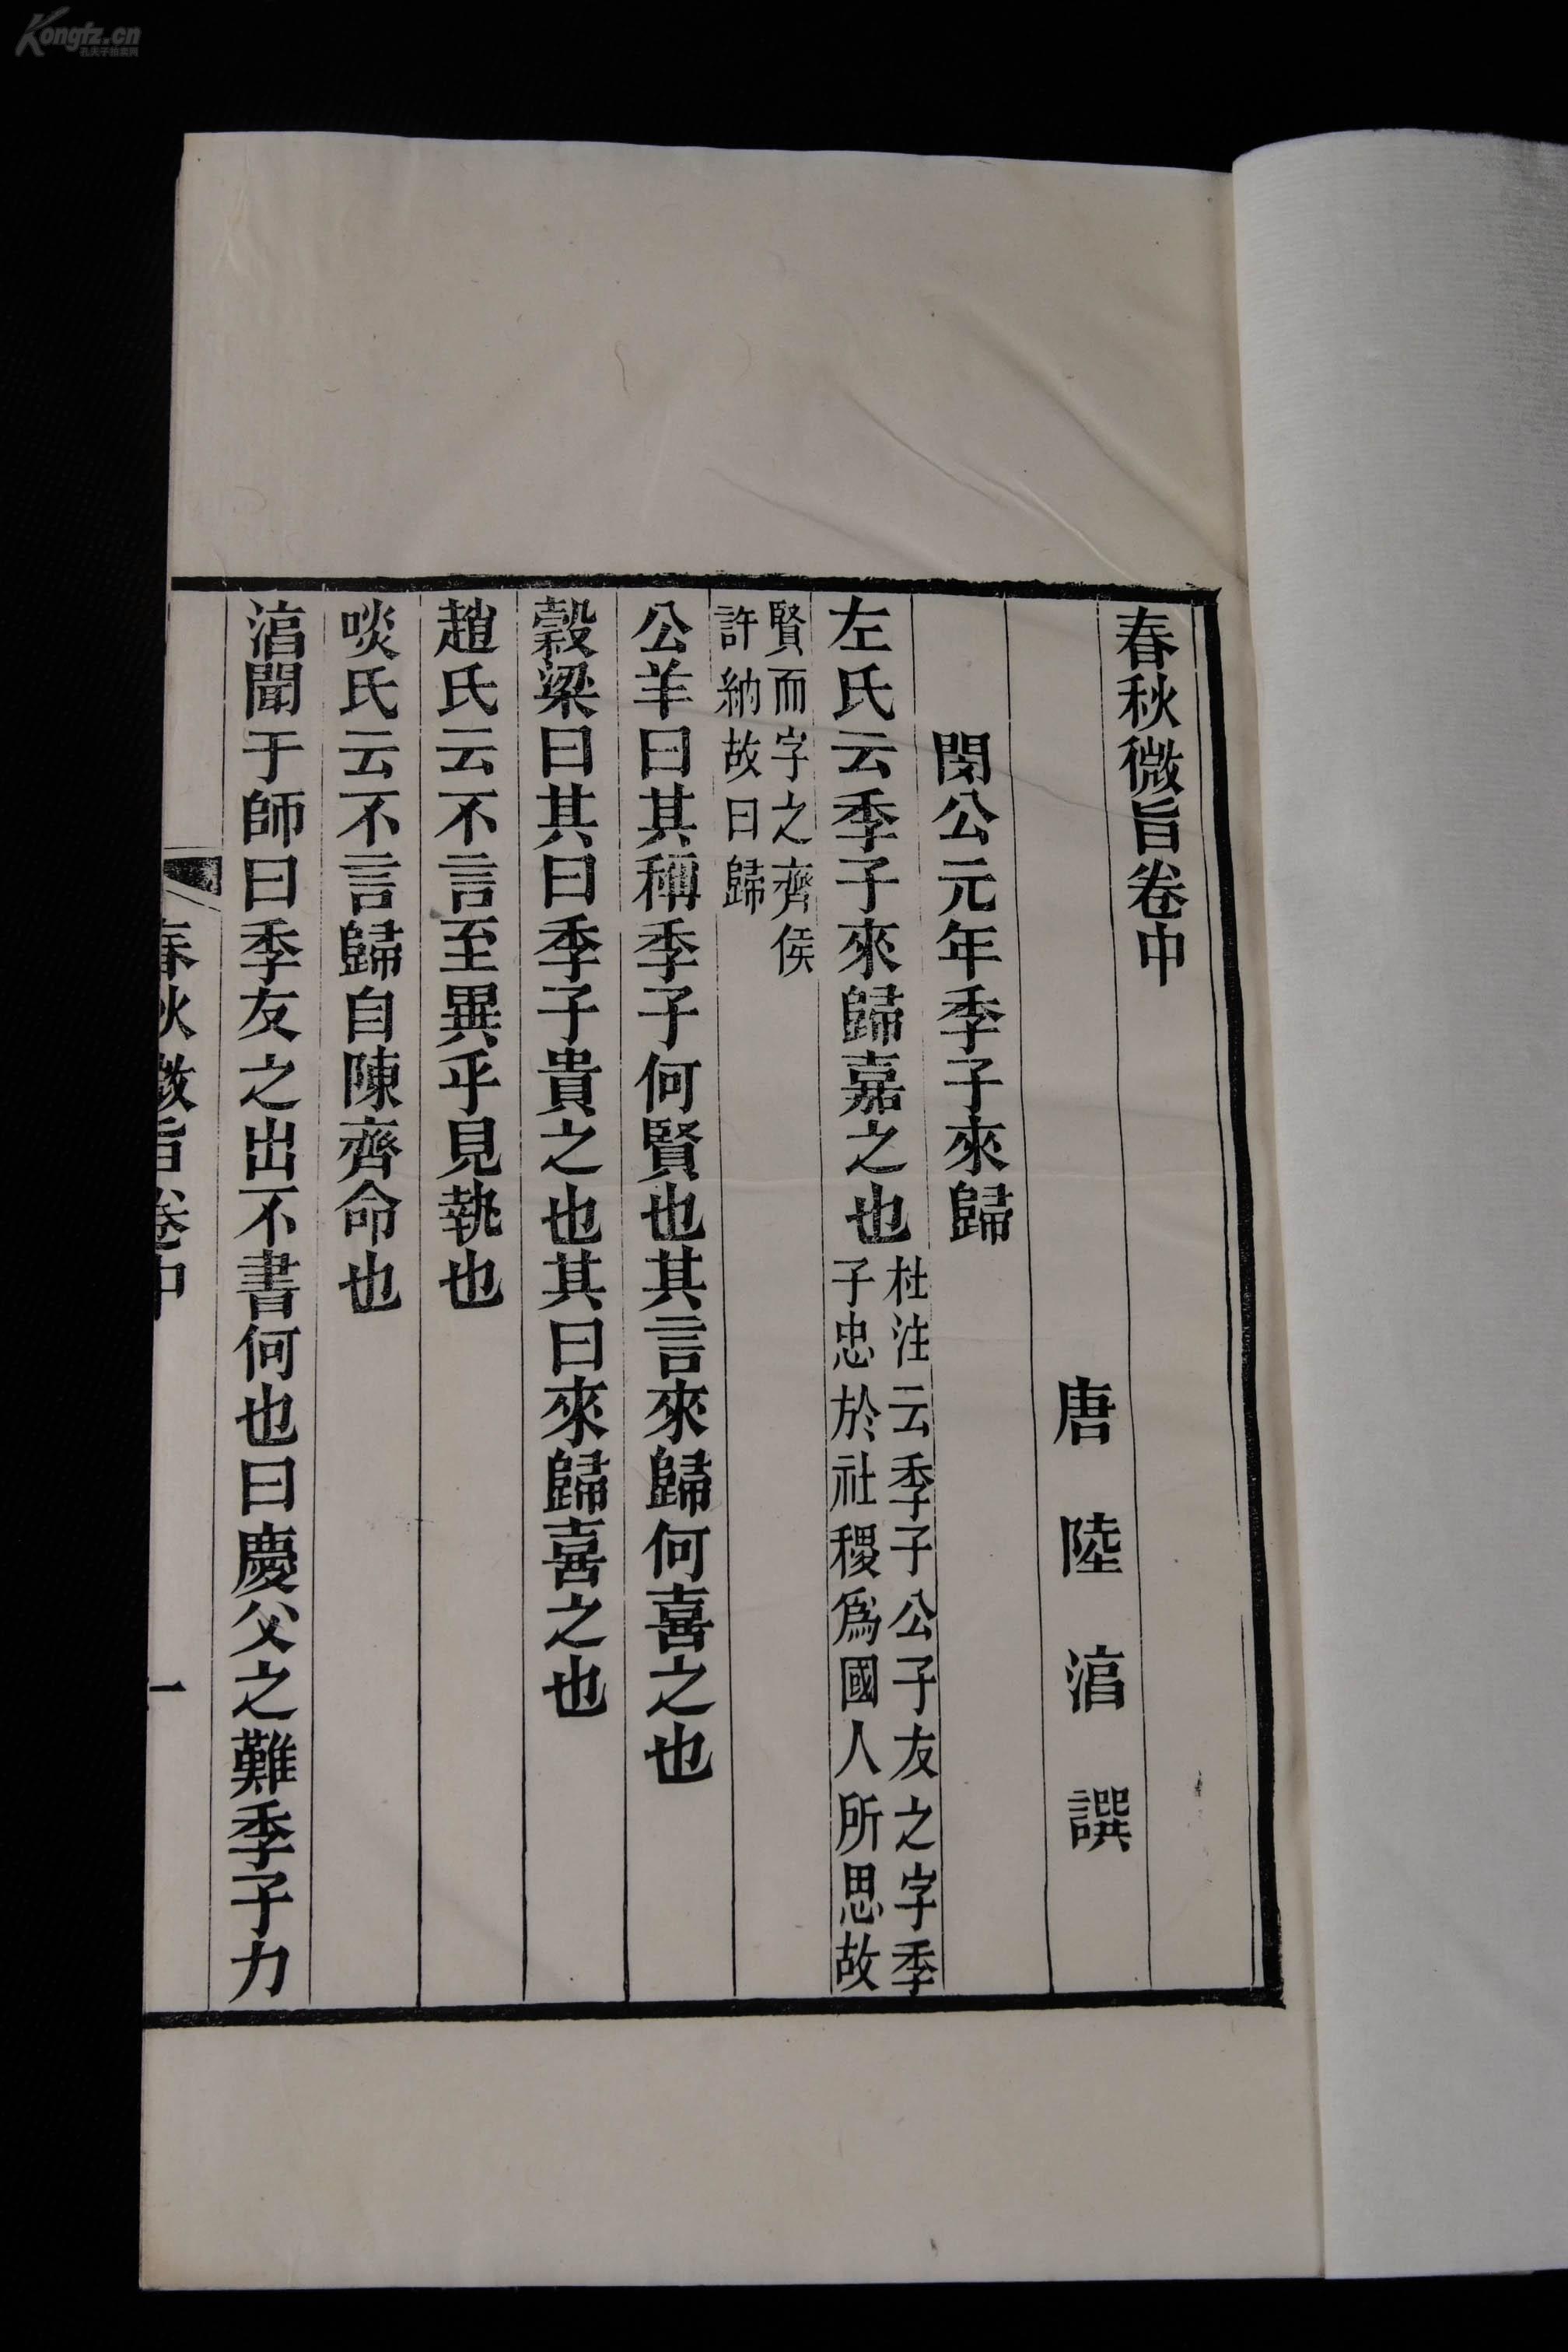 Kongfz.cn
孔夫子拍卖网
春秋微旨卷中
唐陸淳譔
閔公元年季子來歸
左氏云季子來歸嘉之也杜注云季子公子友之字季
子忠於社稷爲國人所思故
賢而字之齊侯
許納故曰歸
公羊曰其稱季子何賢也其言來歸何喜之也
穀梁曰其曰季子貴之也其曰來歸喜之也
趙氏云不言至異乎見執也
啖氏云不言歸自陳齊命也
淳聞于師曰季友之出不書何也曰慶父之難季子力
春秋微旨卷中
一